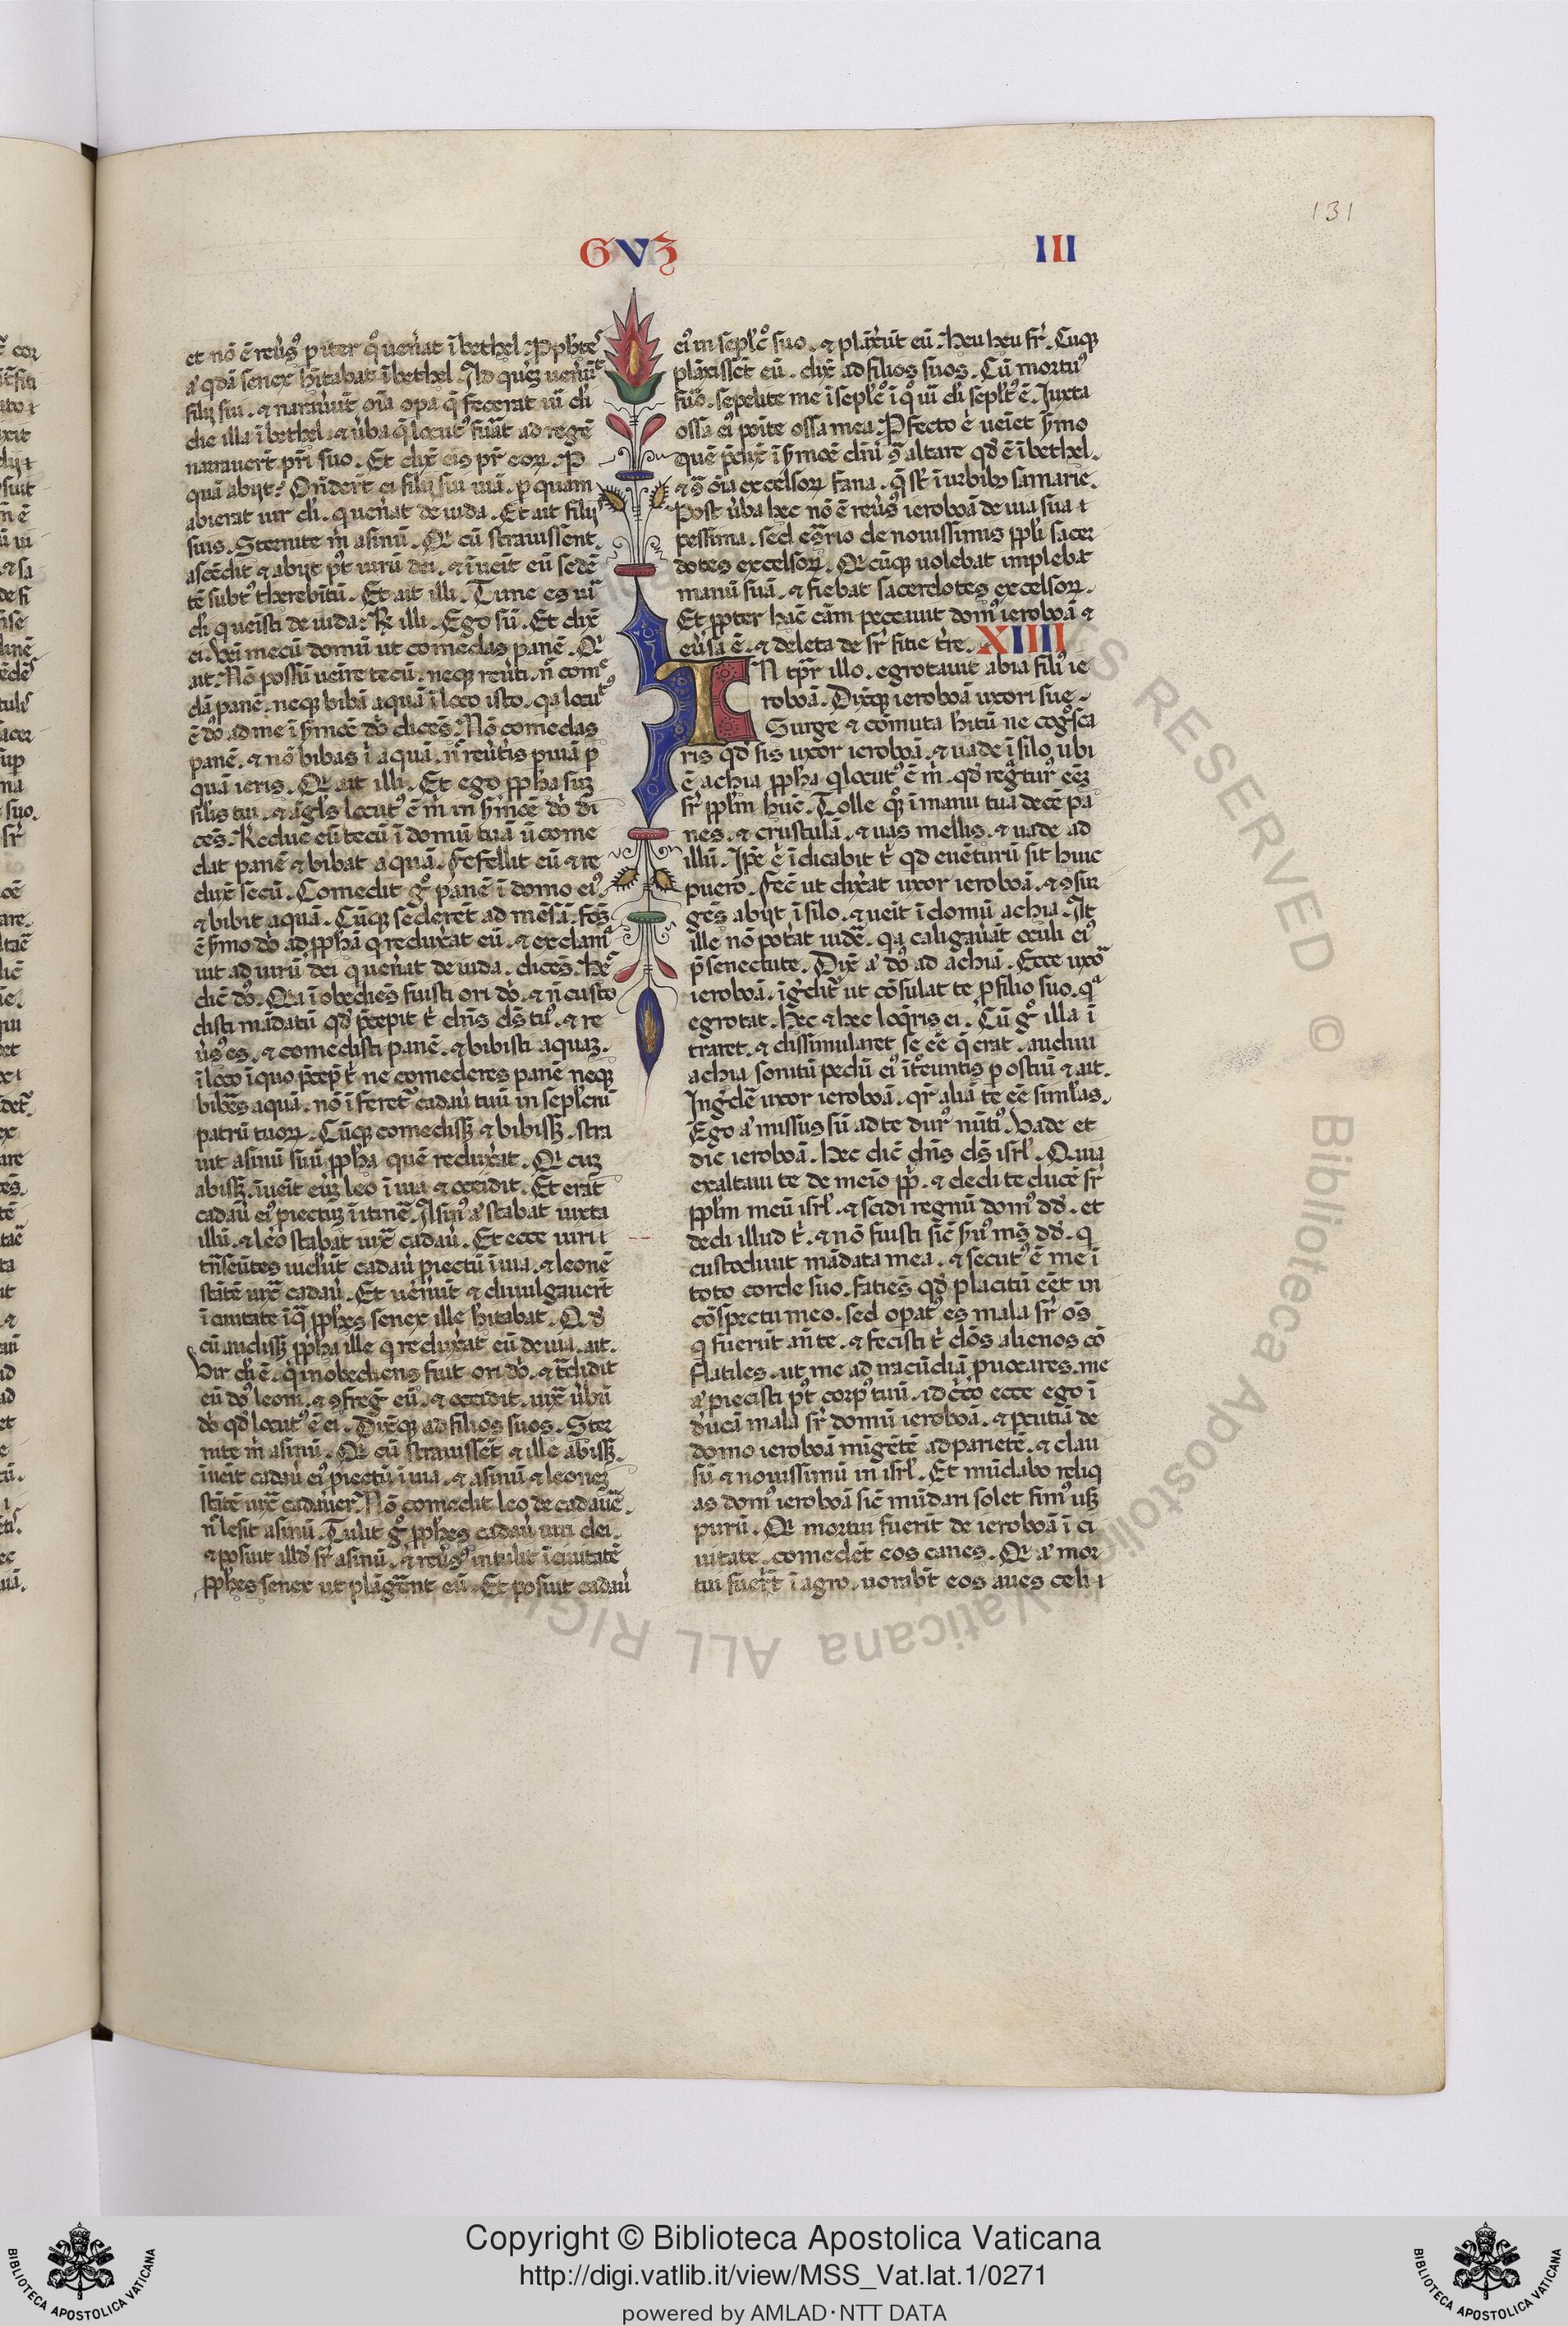 131
GVZ III
et nō ē reūsꝰ p iter qͦ ueñat ī bethel. Pphete
a̓ qdā senex hītabat ī bethel. Ad quēz uenūt
filij sui. ⁊ narrauūt oīa opa q̄ fecerat uī di̓
die illa ī bethel. ⁊ ūba q̄ locutꝰ fuāt ad regē
narrauerūt pri̓ suo. Et dixͭ eis pr̄ eoꝝ. P
quā abijt? Oñdert̄ ei filij sui uiā. p quam
abierat uir di̓. q ueñat de iuda. Et ait filijs
suis. Sternite m̓ asinū. Qͥ cū strauissent.
ascēdit ⁊ abijt pꝰt uirū dei. ⁊ īueīt eū sedē
tē subtꝰ therebītū. Et ait illi. Tu ne es uī
di̓ q ueīsti de iuda? R̓ illi. Ego sū. Et dixͭ
ei. Vēi mecū domū ut comedas panē. Qͥ
ait. Nō possū ueīre tecū. neqꝫ reūti. n̄ come
dā panē. neqꝫ bibā aquā ī loco isto. qa locutꝰ
ē dn̄s ad me ī ẜmōe dn̄i dicēs. Nō comedas
panē. ⁊ nō bibas ī aquā. n̄ reūtis p uiā p
quā ieris. Qͥ ait illi. Et ego ꝓpha suꝫ
sił̓is tui. ⁊ āgls̓ locutꝰ ē m̓ in ẜmōe dn̄i di
cēs. Reduc eū tecū ī domū tuā ū come
dat panē ⁊ bibat aquā. Fefellit eū ⁊ re
duxͭ secū. Comedit gͦ panē ī domo eiꝰ
⁊ bibit aquā. Cūqꝫ sederēt ad mēsā. fcs̄
ē ẜmo dn̄i ad ꝓphā q reduxāt eū. ⁊ exclama
uit ad uirū dei q ueñat de iuda. dicēs. Hec
dic̄ dn̄s. Qa ī obediēs fuisti ori dn̄i. ⁊ n̄ custo
disti mādatū qd̓ p̄cepit t̓ dn̄s ds̄ tuꝰ. ⁊ re
ūsꝰ es. ⁊ comedisti panē. ⁊ bibisti aquaꝫ.
ī loco ī quo p̄cepit t̓ ne comederes panē neqꝫ
biberes aquā. nō īferet̓ cadau̓ tuū in sepl̓cru̅
patrū tuoꝝ. Cūqꝫ comedissꝫ ⁊ bibissꝫ. stra
uit asinū suū ꝓpha quē reduxāt. Qͥ cuꝫ
abissꝫ. īueīt euꝫ leo ī uia ⁊ occidit. Et erat
cadau̓ eiꝰ ꝓiectuꝫ ī itinē. Asinꝰ a̓ stabat iuxta
illū. ⁊ leo stabat iuxͭ cadau̓. Et ecce uiri t
rāseūtes uidūt cadau̓ ꝓiectū ī uia. ⁊ leonē
stātē iuxͭ cadau̓. Et uenūt ⁊ diuulgauerūt
ī ciuitate ī q̄ ꝓphes senex ille hītabat. Qd̓
cū audissꝫ ꝓpha ille q reduxāt eū de uia. ait.
Vir di̓ ē. q̓ inobediens fuit ori dn̄i. ⁊ t̄didit
eū dn̄s leoni. ⁊ ꝯfregͭ eū. ⁊ occidit. iuxͭ ūbū
dn̄i qd̓ locutꝰ ē ei. Dixͭqꝫ ad filios suos. Ster
nite m̓ asinū. Qͥ cū strauissēt ⁊ ille abissꝫ.
īueīt cadau̓ eiꝰ ꝓiectū ī uia. ⁊ asinū ⁊ leoneꝫ
stātē iuxͭ cadauer. Nō comedit leo de cadauē.
n̄ lesit asinū. Tulit gͦ ꝓphes cadau̓ uiri dei.
⁊ posuit illd̓ sr̄ asinū. ⁊ reūsꝰ intulit ī ciuitatē
ꝓphes senex ut plāgerent eū. Et posuit cadau̓
eiꝰ in sepl̓cͦ suo. ⁊ plāxūt eū. Heu heu fr̄. Cūqꝫ
plāxissēt eū. dixͭ ad filios suos. Cū mortuꝰ
fuō. sepelite me ī sepl̓cͦ ī qͦ uī di̓ sepl̓tꝰ ē. Iuxta
ossa eiꝰ poīte ossa mea. Pfecto ē ueīet ẜmo
quē p̄dixͭ ī ẜmōe dn̄i ꝯ̄ altare qd̓ ē ī bethel.
⁊ ꝯ̄ oīa excelsoꝝ fana. q̄ st̄ ī urbibꝫ samarie.
Post ūba hec nō ē reūsꝰ ieroboā de uia sua t
pessima. sed eꝯ̄rio de nouissimis ppl̓i sacer
dotes excelsoꝝ. Qͥcūqꝫ uolebat implebat
manū suā. ⁊ fiebat sacerdotes excelsoꝝ.
Et ꝓpter hāc cām peccauit domꝰ ieroboā ⁊
eūsa ē. ⁊ deleta de sr̄ficie tr̄re. XIIII
IN tp̄r illo. egrotauit abia filiꝰ ie
roboā. Dixͭqꝫ ieroboā uxori sue.
Surge ⁊ cōmuta hītū ne cogͦsca
ris qd̓ sis uxor ieroboā. ⁊ uade ī silo. ubi
ē achia ꝓpha q locutꝰ ē m̓. qd̓ regͣturꝰ eēꝫ
sr̄ ppl̓m hūc. Tolle qͦqꝫ ī manu tua decē pa
nes. ⁊ crustulā. ⁊ uas mellis. ⁊ uade ad
illū. Ip̄e ē īdicabit t̓ qd̓ euēturū sit huic
puero. Fec̄ ut dixāt uxor ieroboā. ⁊ ꝯsur
gēs abijt ī silo. ⁊ ueīt ī domū achia. At
ille nō potāt uidē. qa caligauāt oculi eiꝰ
p̄ senectute. Dixͭ a̓ dn̄s ad achiā. Ecce uxor
ieroboā. īgͤdit̓ ut cōsulat te p filio suo. qͣ
egrotat. Hec ⁊ hec loqͤris ei. Cū gͦ illa ī
traret. ⁊ dissimularet se eē q̄ erat. audiuit
achia sonitū pedū eiꝰ ītroeuntis p ostiū ⁊ ait.
Ingͤdē uxor ieroboā. qr̄ aliā te eē simłas.
Ego a̓ missus sū ad te durꝰ nūtiꝰ. Vade et
dic ieroboā. Hec dic̄ dn̄s ds̄ isrl̓. Quia
exaltaui te de medio pp̓li. ⁊ dedi te ducē sr̄
ppl̓m meū isrl̓. ⁊ scidi regnū domꝰ dd̓. et
dedi illud t̓. ⁊ nō fuisti sic̄ ẜuꝰ ms̄ dd̓. q
custodiuit mādata mea. ⁊ secutꝰ ē me ī
toto corde suo. faties qd̓ placitū eēt in
cōspectu meo. sed opatꝰ es mala sr̄ os̄
q fuerūt añ te. ⁊ fecisti t̓ dōs alienos cō
flatiles. ut me ad iracūdiā ꝓuocares. me
a̓ ꝓiecisti pꝰt corpꝰ tuū. idc̓co ecce ego ī
ducā mala sr̄ domū ieroboā. ⁊ pcutiā de
domo ieroboā mīgētē ad parietē. ⁊ clau
sū ⁊ nouissimū in isrl̓. Et mūdabo reliq
as domꝰ ieroboā sic̄ mūdari solet fimꝰ usꝫ
purū. Qͥ mortui fuerīt de ieroboā ī ci
uitate. comedēt eos canes. Qͥ a̓ mor
tui fuerīt ī agro. uorabt̄ eos aues celi t
Copyright © Biblioteca Apostolica Vaticana
http://digi.vatlib.it/view/MSS_Vat.lat.1/0271
powered by AMLAD·NTT DATA